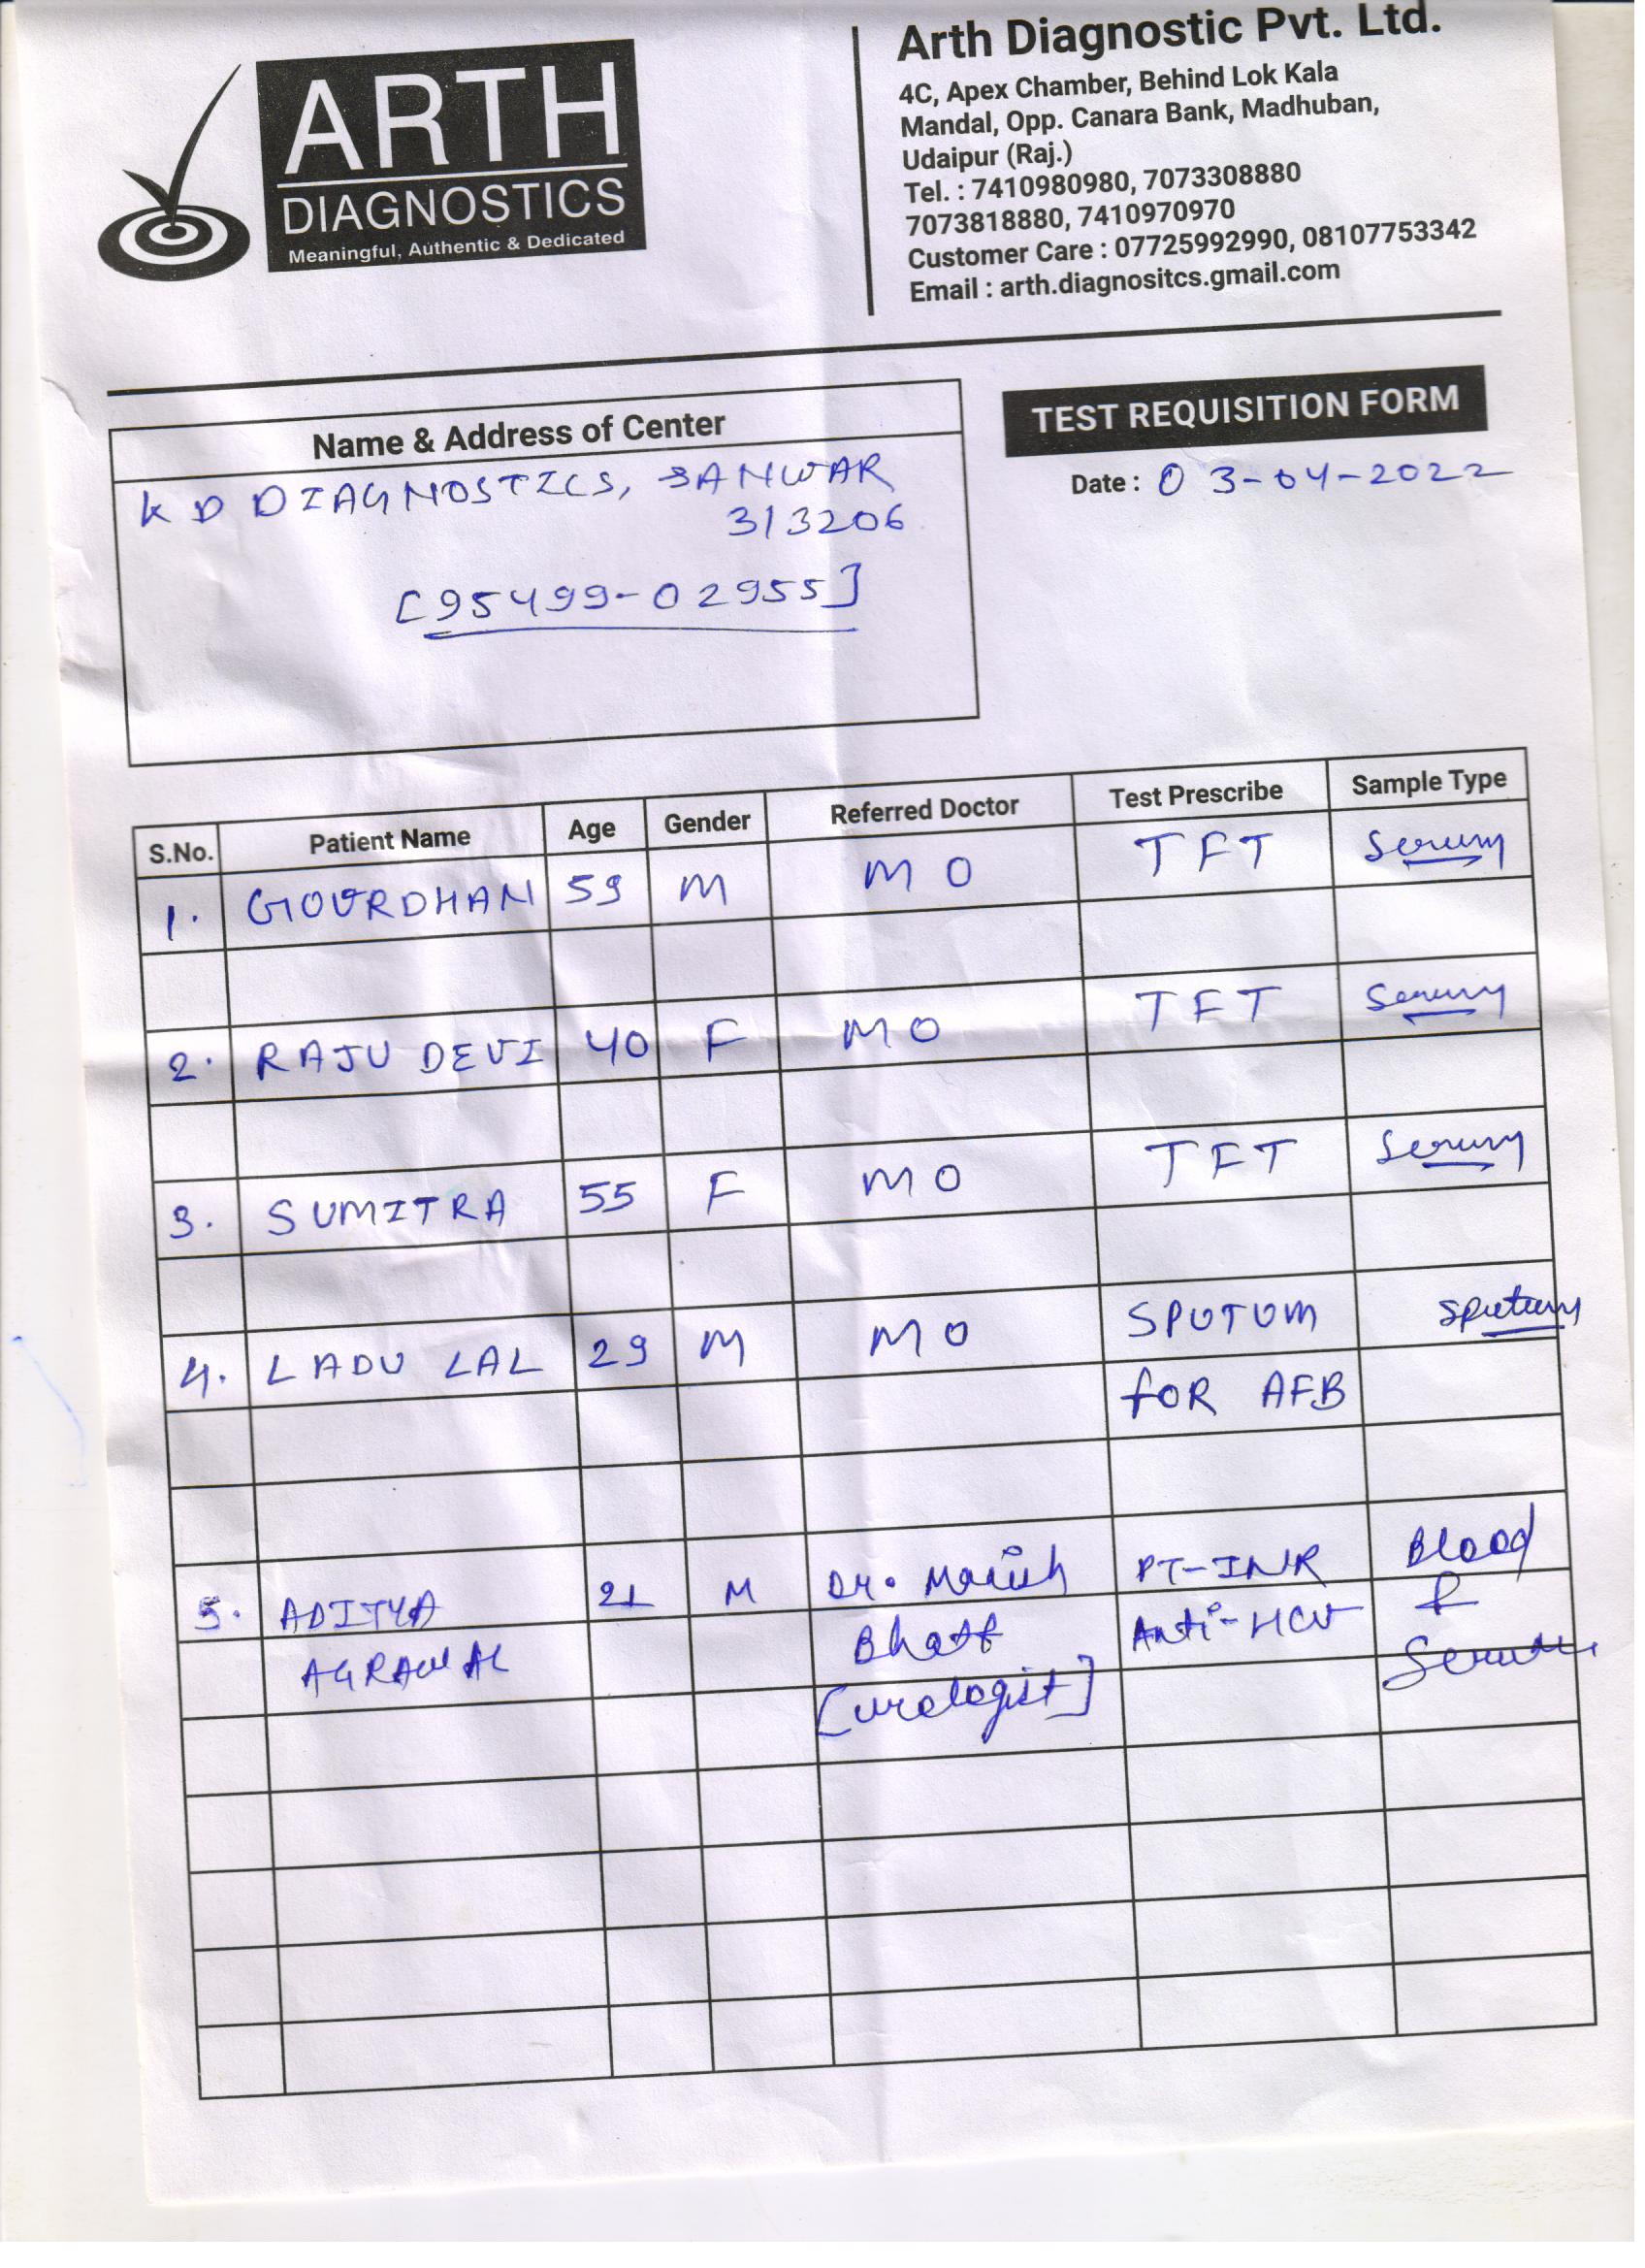 ARTH
DIAGNOSTICS
Meaningful, Authentic & Dedicated
Arth Diagnostic Pvt. Ltd.
4C, Apex Chamber, Behind Lok Kala
Mandal, Opp. Canara Bank, Madhuban,
Udaipur (Raj.)
Tel. : 7410980980, 7073308880
7073818880, 7410970970
Customer Care : 07725992990, 08107753342
Email : arth.diagnositcs.gmail.com
Name & Address of Center
TEST REQUISITION FORM
KD DIAGNOSTICS, SANWAR
313206
[95499-02955]
Date : 03-04-2022
S.No. Patient Name Age Gender Referred Doctor Test Prescribe Sample Type
1. GOVRDHAN 59 M MO TFT Serum
2. RAJU DEVI 40 F MO TFT Serum
3. SUMITRA 55 F MO TFT Serum
4. LADU LAL 29 M MO SPUTUM Sputum
FOR AFB
5. ADITYA 21 M Dr. Manish PT-INR Blood
AGRAWAL Bhatt Anti-HCV &
[urologist] Serum